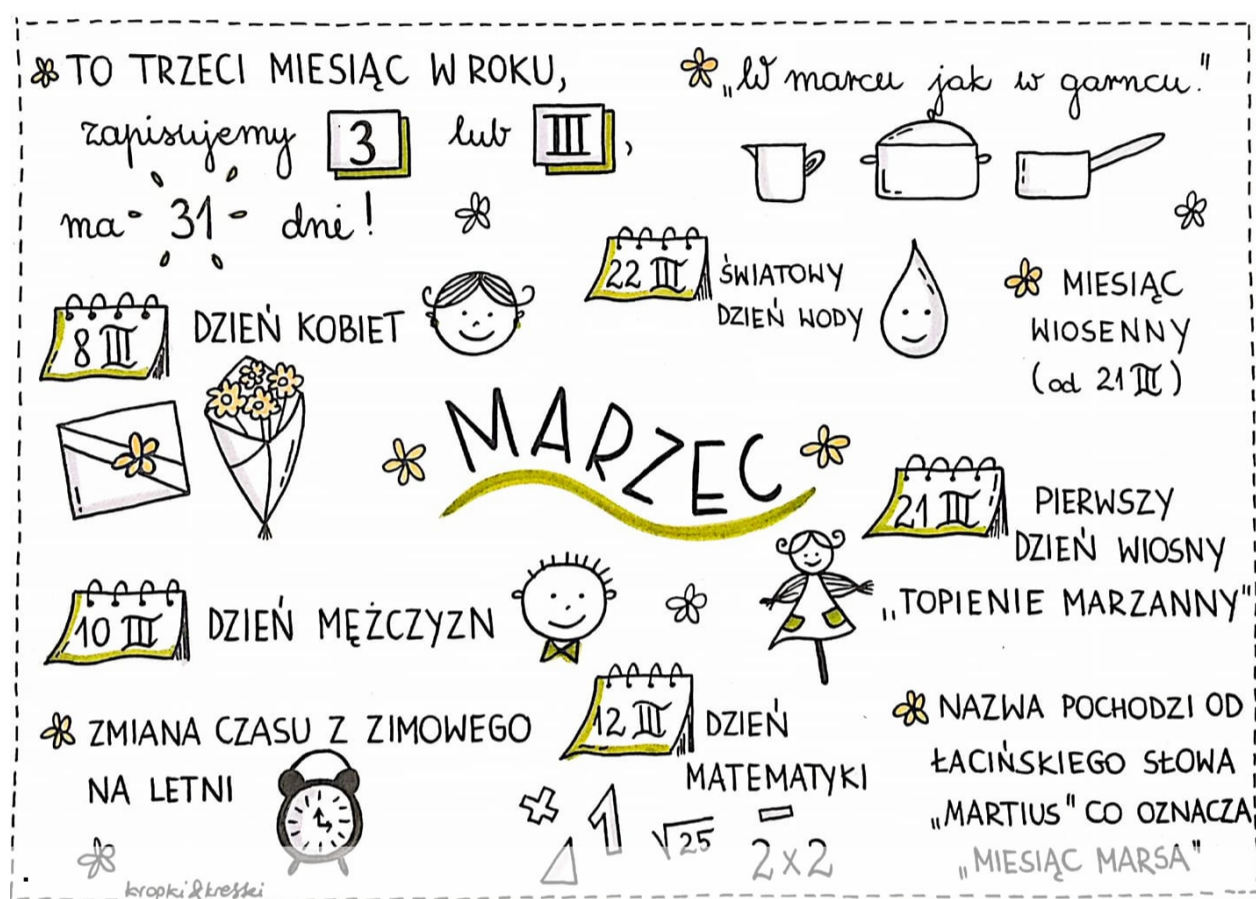 TO TRZECI MIESIĄC W ROKU,
zapisujemy 3 lub III,
ma 31 dni!
„W marcu jak w garncu."
8 III
DZIEŃ KOBIET
22 III
ŚWIATOWY
DZIEŃ WODY
MIESIĄC
WIOSENNY
(od 21 III)
MARZEC
21 III
PIERWSZY
DZIEŃ WIOSNY
„TOPIENIE MARZANNY"
10 III
DZIEŃ MĘŻCZYZN
ZMIANA CZASU Z ZIMOWEGO
NA LETNI
12 III
DZIEŃ
MATEMATYKI
+ 1 √25 -
2x2
NAZWA POCHODZI OD
ŁACIŃSKIEGO SŁOWA
„MARTIUS" CO OZNACZA
„MIESIĄC MARSA"
kropki&kreski